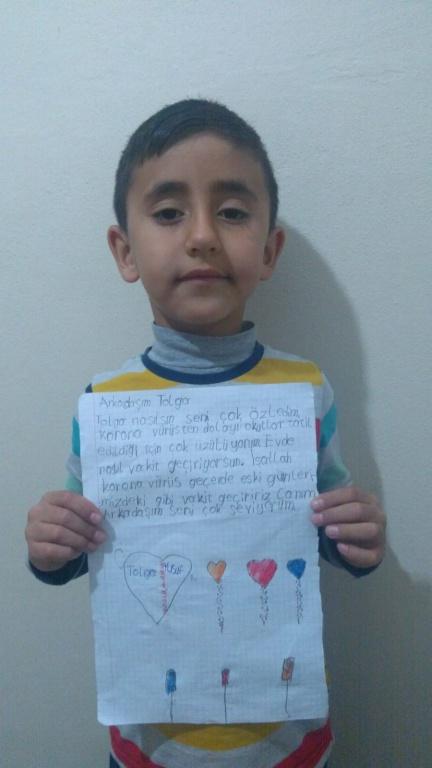 Arkadaşım Tolga
Tolga nasılsın seni çok özledim
Korona vürüsten dolayı okullar tatil
edildiği için çok üzülüyorum Evde
nasıl vakit geçiriyorsun. İşallah
korona vürüs geçerde eski günleri
mizdeki gibi vakit geçiririz Canım
Arkadaşım seni çok seviyorum
Tolga Yusuf